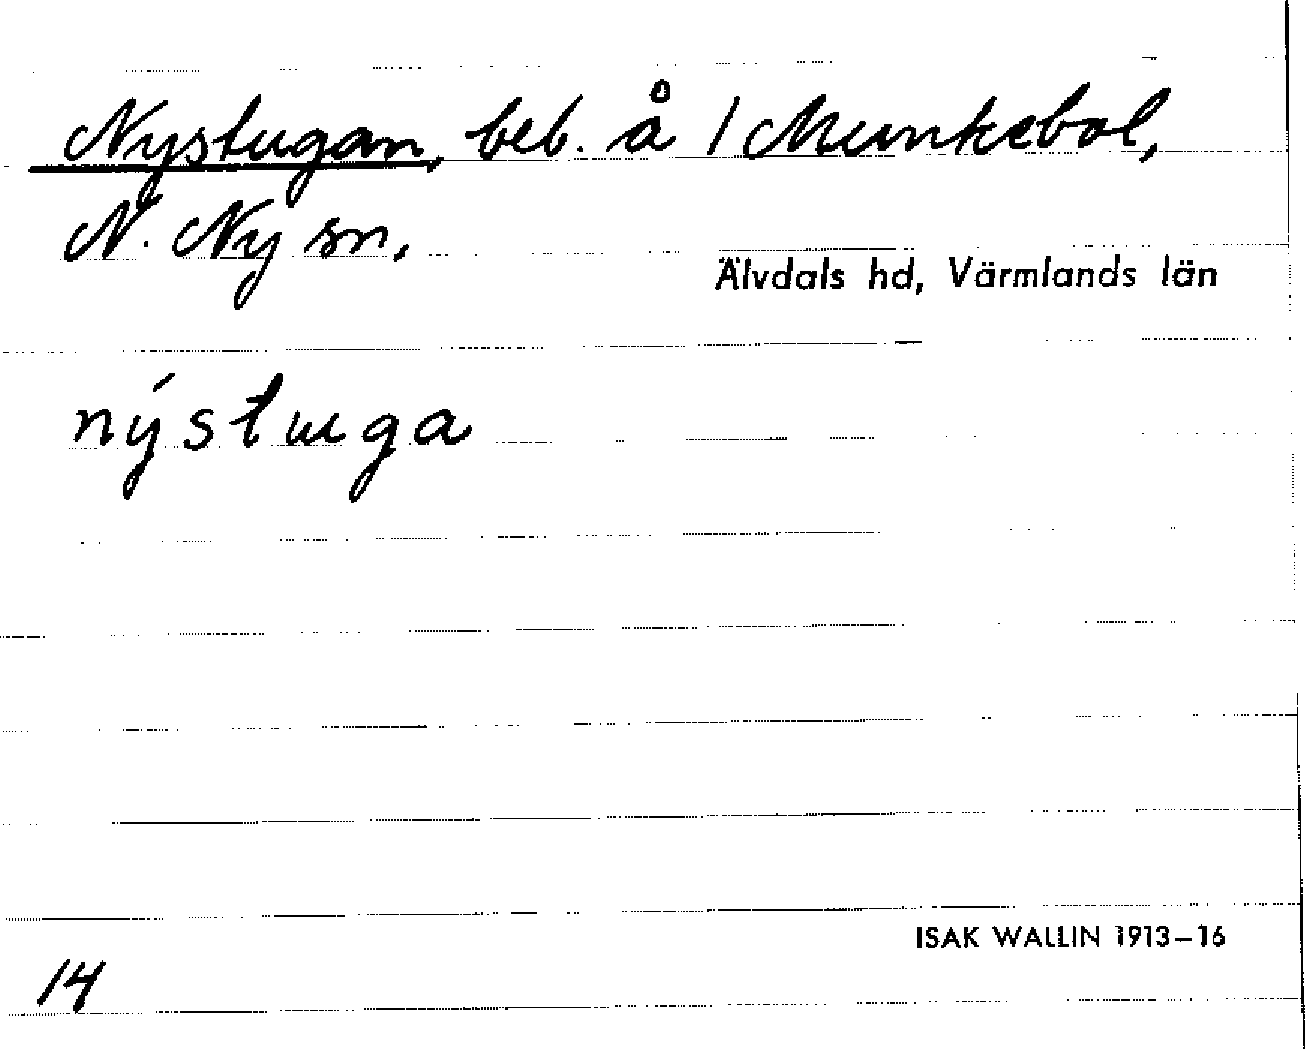 Nystugan, beb. å 1 Munkebol,
N. Ny sn.
Älvdals hd, Värmlands län
nýstɯga
ISAK WALLIN 1913–16
14